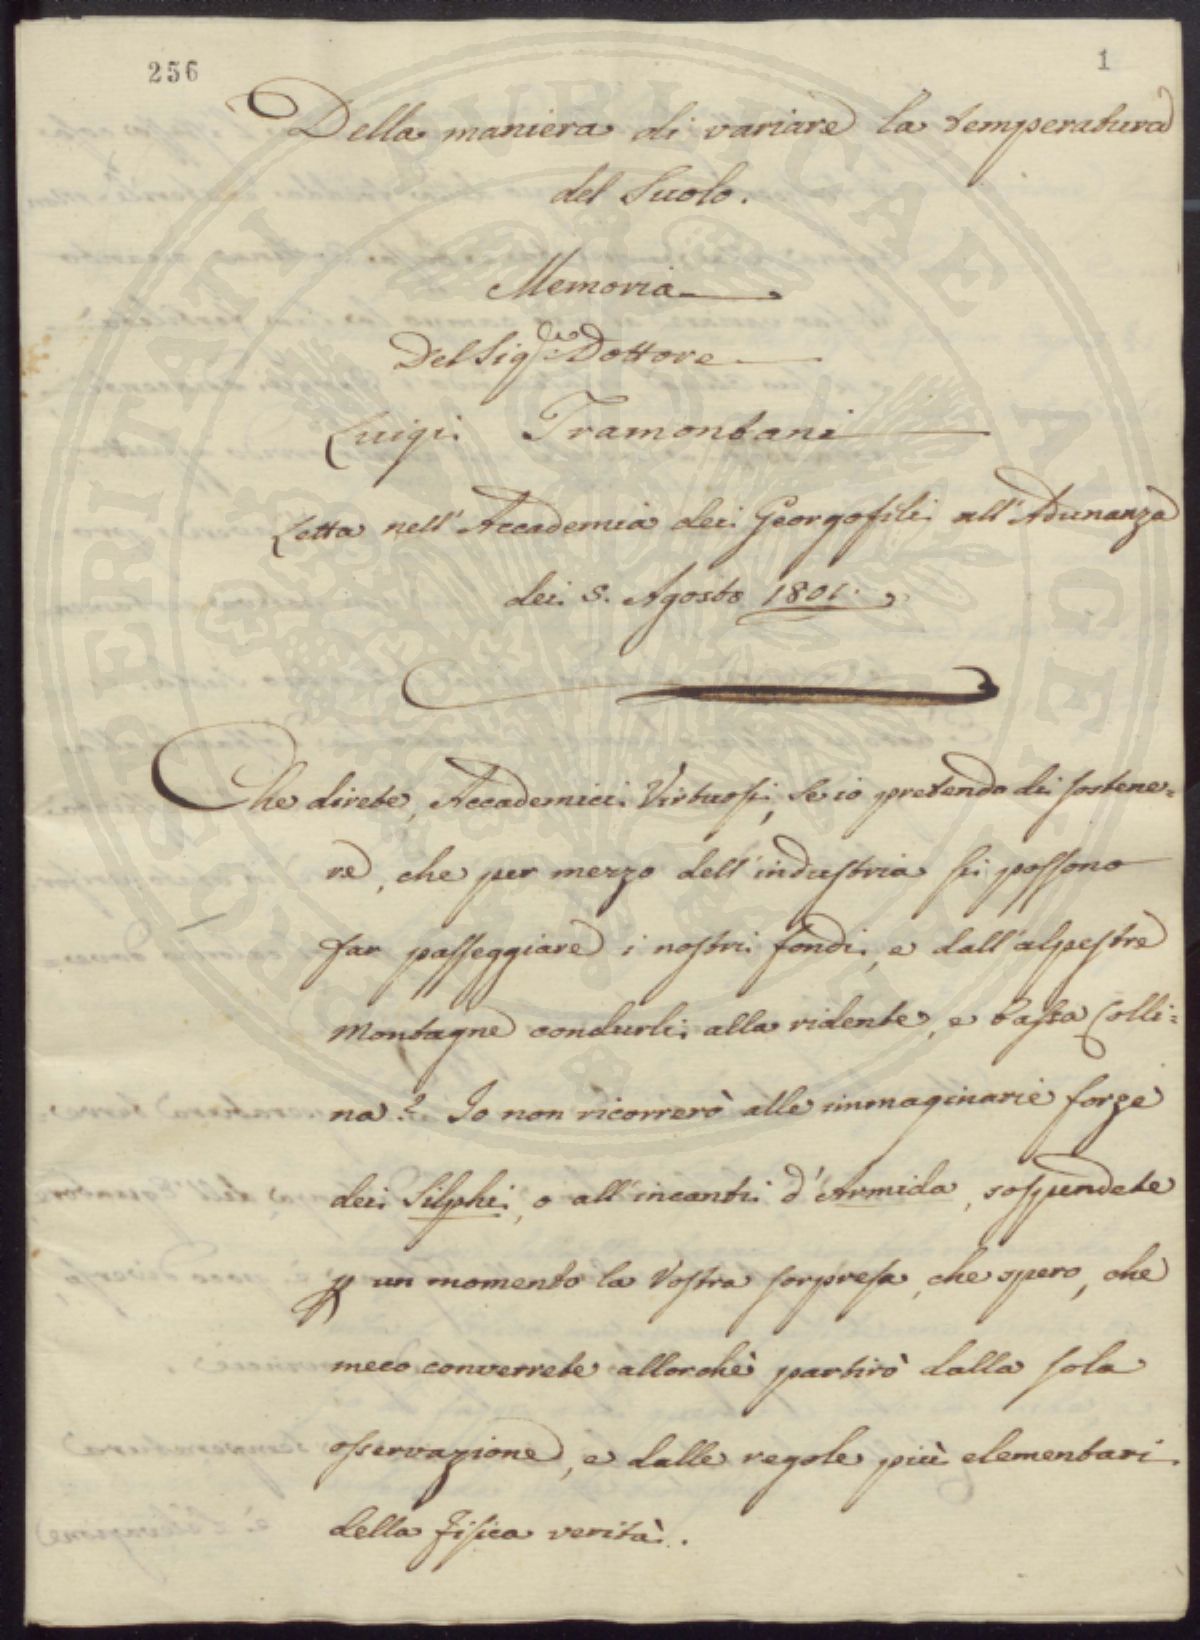 256
1
Della maniera di variare la temperatura
del Suolo.
Memoria
Del Sig.re Dottore
Luigi Tramontani
Letta nell'Accademia dei Georgofili all'Adunanza
dei 5. Agosto 1801.
Che direte, Accademici Virtuosi, se io pretendo di sostene=
re, che per mezzo dell'industria si possono
far passeggiare i nostri fondi, e dall'alpestre
Montagne condurli alla ridente, e bassa Colli=
na? Io non ricorrerò alle immaginarie forze
dei Silphi, o all'incanti d'Armida, sospendete
p un momento la Vostra sorpresa, che spero, che
meco converrete allorchè partirò dalla sola
osservazione, e dalle regole più elementari
della Fisica verità.
PROSPERITATI PUBLICAE AUGENDAE